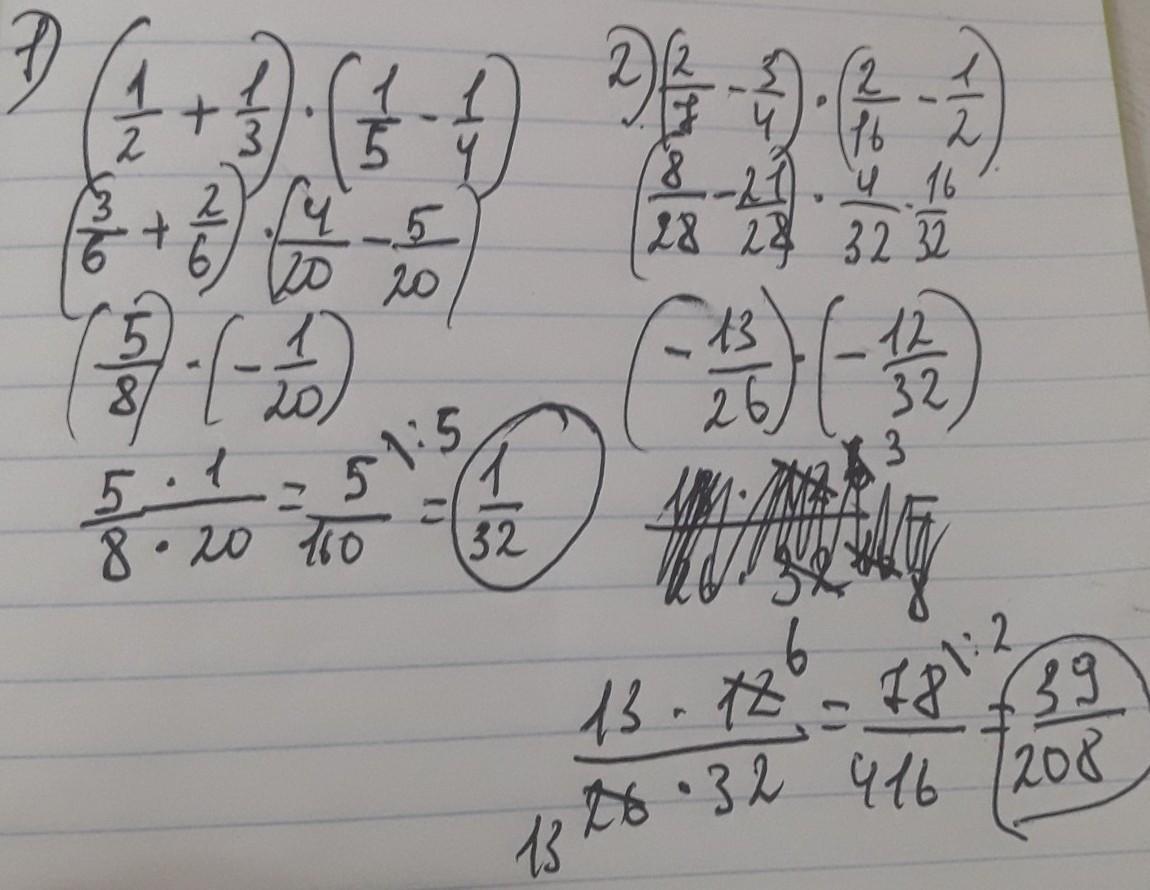 1) (1/2 + 1/3) · (1/5 - 1/4)
(3/6 + 2/6) · (4/20 - 5/20)
(5/8) · (- 1/20)
5 · 1 / 8 · 20 = 5/160 \:5 = 1/32
2) (2/7 - 3/4) · (2/16 - 1/2)
(8/28 - 21/28) · 4/32 - 16/32
(- 13/26) · (- 12/32)
13 · 12 6 / 13 26 · 32 = 78/416 \:2 = 39/208